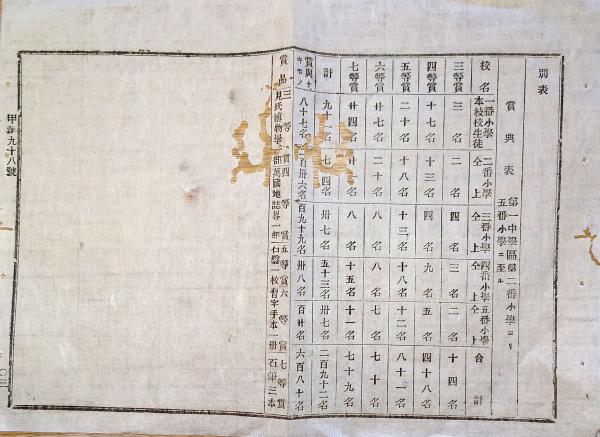 別表
賞典表 第一中學區第二番小學ヨリ
五番小學ニ至ル
校名 一番小學 二番小學 三番小學 四番小學 五番小學 合計
本校校生徒 仝上 仝上 仝上 仝上
三等賞 三名 二名 四名 三名 二名 十四名
四等賞 十七名 十三名 四名 九名 五名 四十八名
五等賞 二十名 十八名 十三名 十八名 十二名 八十一名
六等賞 廿七名 二十名 八名 八名 七名 七十名
七等賞 廿四名 廿一名 八名 十五名 十一名 七十九名
計 九十一名 七四名 卅七名 五十三名 卅七名 二百九十二名
賞與ナキモノ 八十七名 二百卅六名 百九十九名 卅八名 百廿名 六百八十名
賞品 三等賞 具氏博物學一部 四等賞 萬國地誌畧一部 五等賞 石盤一枚 六等賞 習字手本一册 七等賞 石筆三本
甲第九十八號